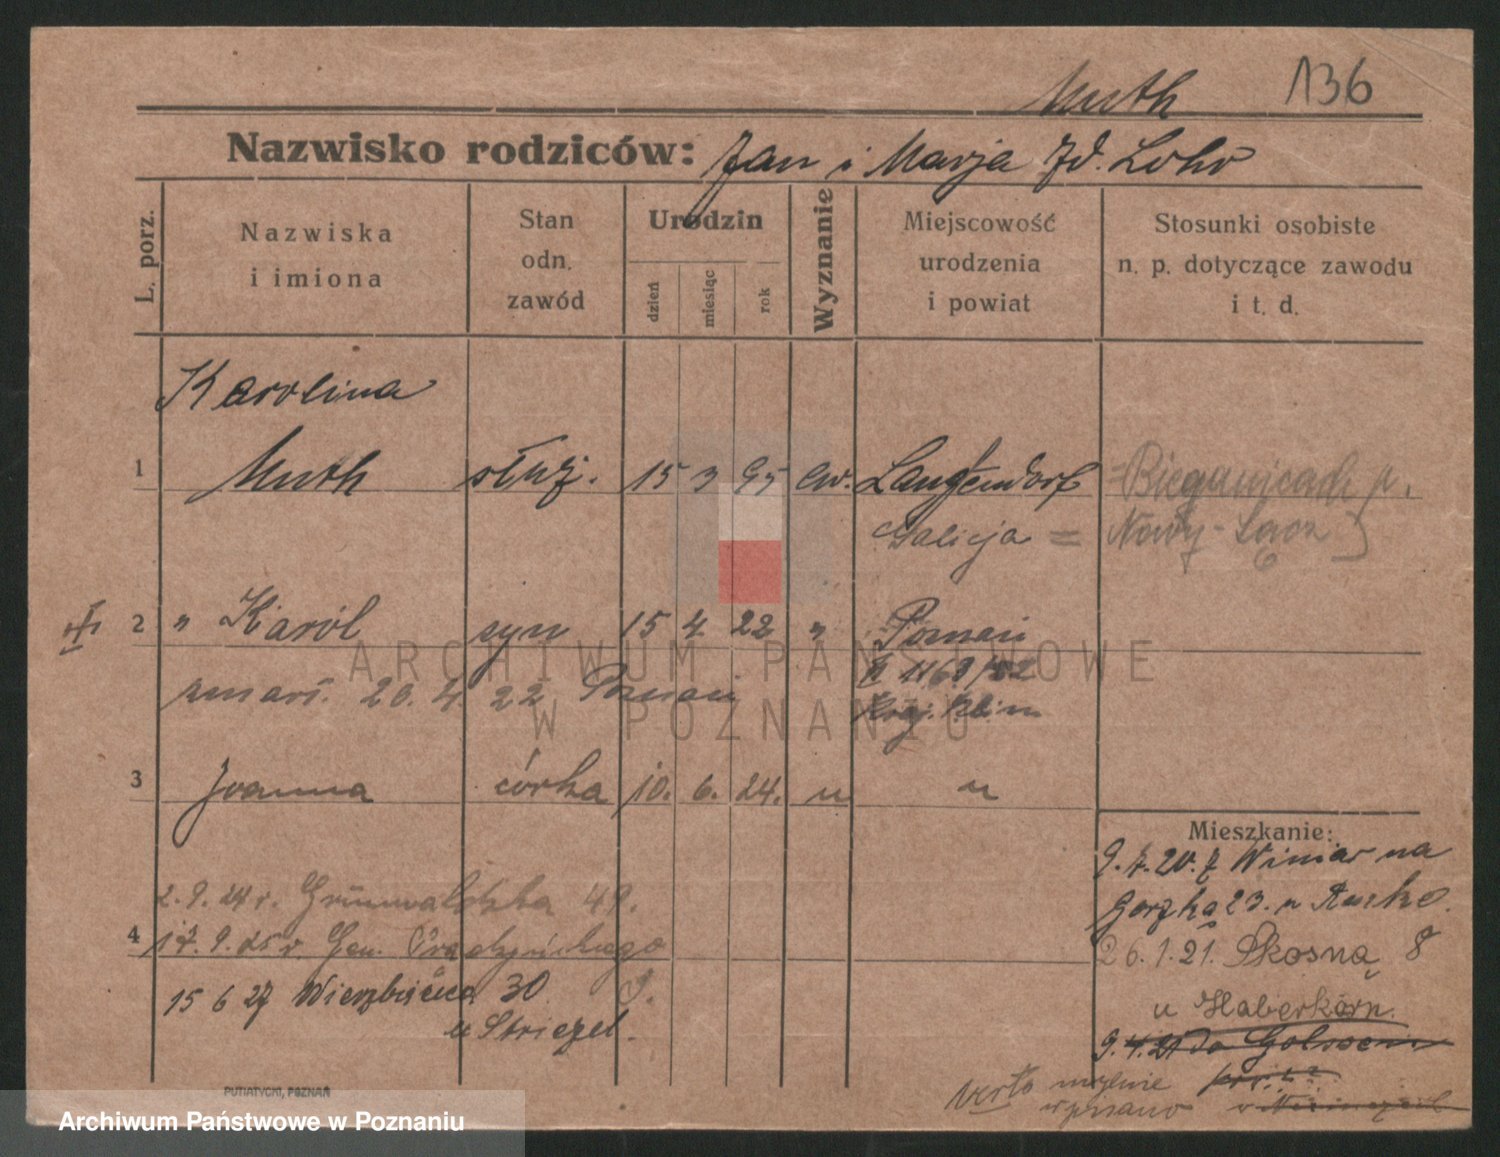 Muth 136
Nazwisko rodziców: Jan i Marja zd. Lohr
L. porz.
Nazwiska i imiona
Stan odn. zawód
Urodzin
dzień
miesiąc
rok
Wyznanie
Miejscowość urodzenia i powiat
Stosunki osobiste n. p. dotyczące zawodu i t. d.
Karolina
1 Muth służ. 15 3 95 ew. Langendorf = Bieganicach p.
Galicja = Nowy-Sącz
2 " Karól syn 15 4 22 " Poznań
zmarł. 20. 4. 22 Poznań
3 Joanna córka 10. 6. 24. " "
Mieszkanie:
9. 7. 20. z Winiar na
2. 9. 24 r. Grunwaldzka 49.
23. u
4 17. 9. 25 r. Gen. Prądzyńskiego
26. 1. 21. Skosna 8
15 6 27 Wierzbięcice 30
u Haberkorn.
u Striezel.
9. 4. 21 do
mylnie
wpisano
PUTIATYCKI, POZNAŃ
ARCHIWUM PAŃSTWOWE
W POZNANIU
Archiwum Państwowe w Poznaniu